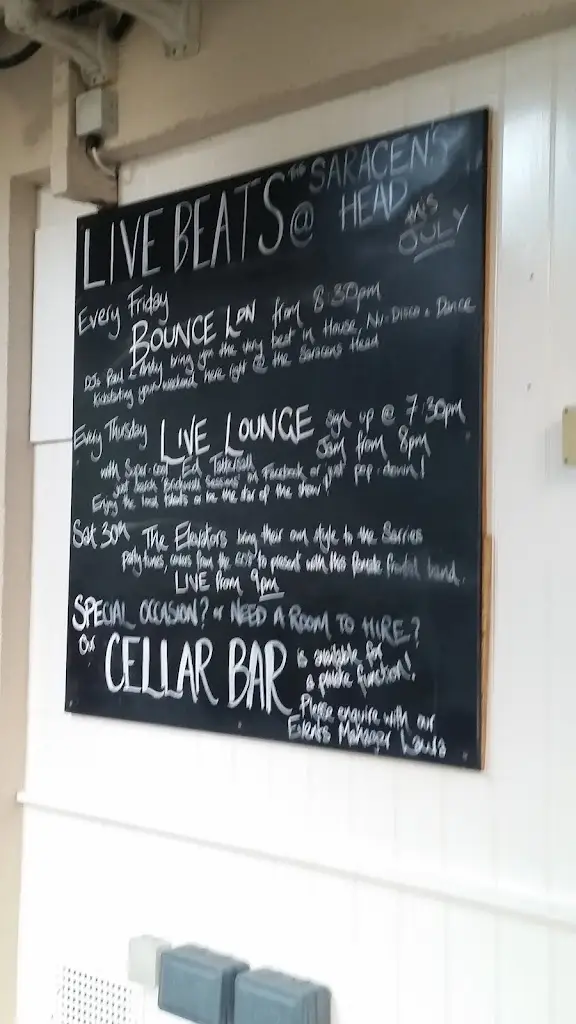 LIVE BEATS @ THE SARACEN'S HEAD
this JULY
Every Friday
BOUNCE LDN from 8:30pm
DJs Paul & Andy bring you the very best in House, Nu-Disco & Dance
Kickstarting your weekend here right @ the Saracens Head
Every Thursday LIVE LOUNGE sign up @ 7:30pm
Jam from 8pm
with Super-cool Ed Tattersall
just search 'Brickwall Sessions' on Facebook or just pop-down!
Enjoy the local talents or be the star of the show!
Sat 30th The Elevators bring their own style to the Sarries
party tunes, covers from the 60's to present with this female fronted band.
LIVE from 9pm
SPECIAL OCCASION? or NEED A ROOM TO HIRE?
Our CELLAR BAR is available for
a private function!
Please enquire with our
Events Manager Laura